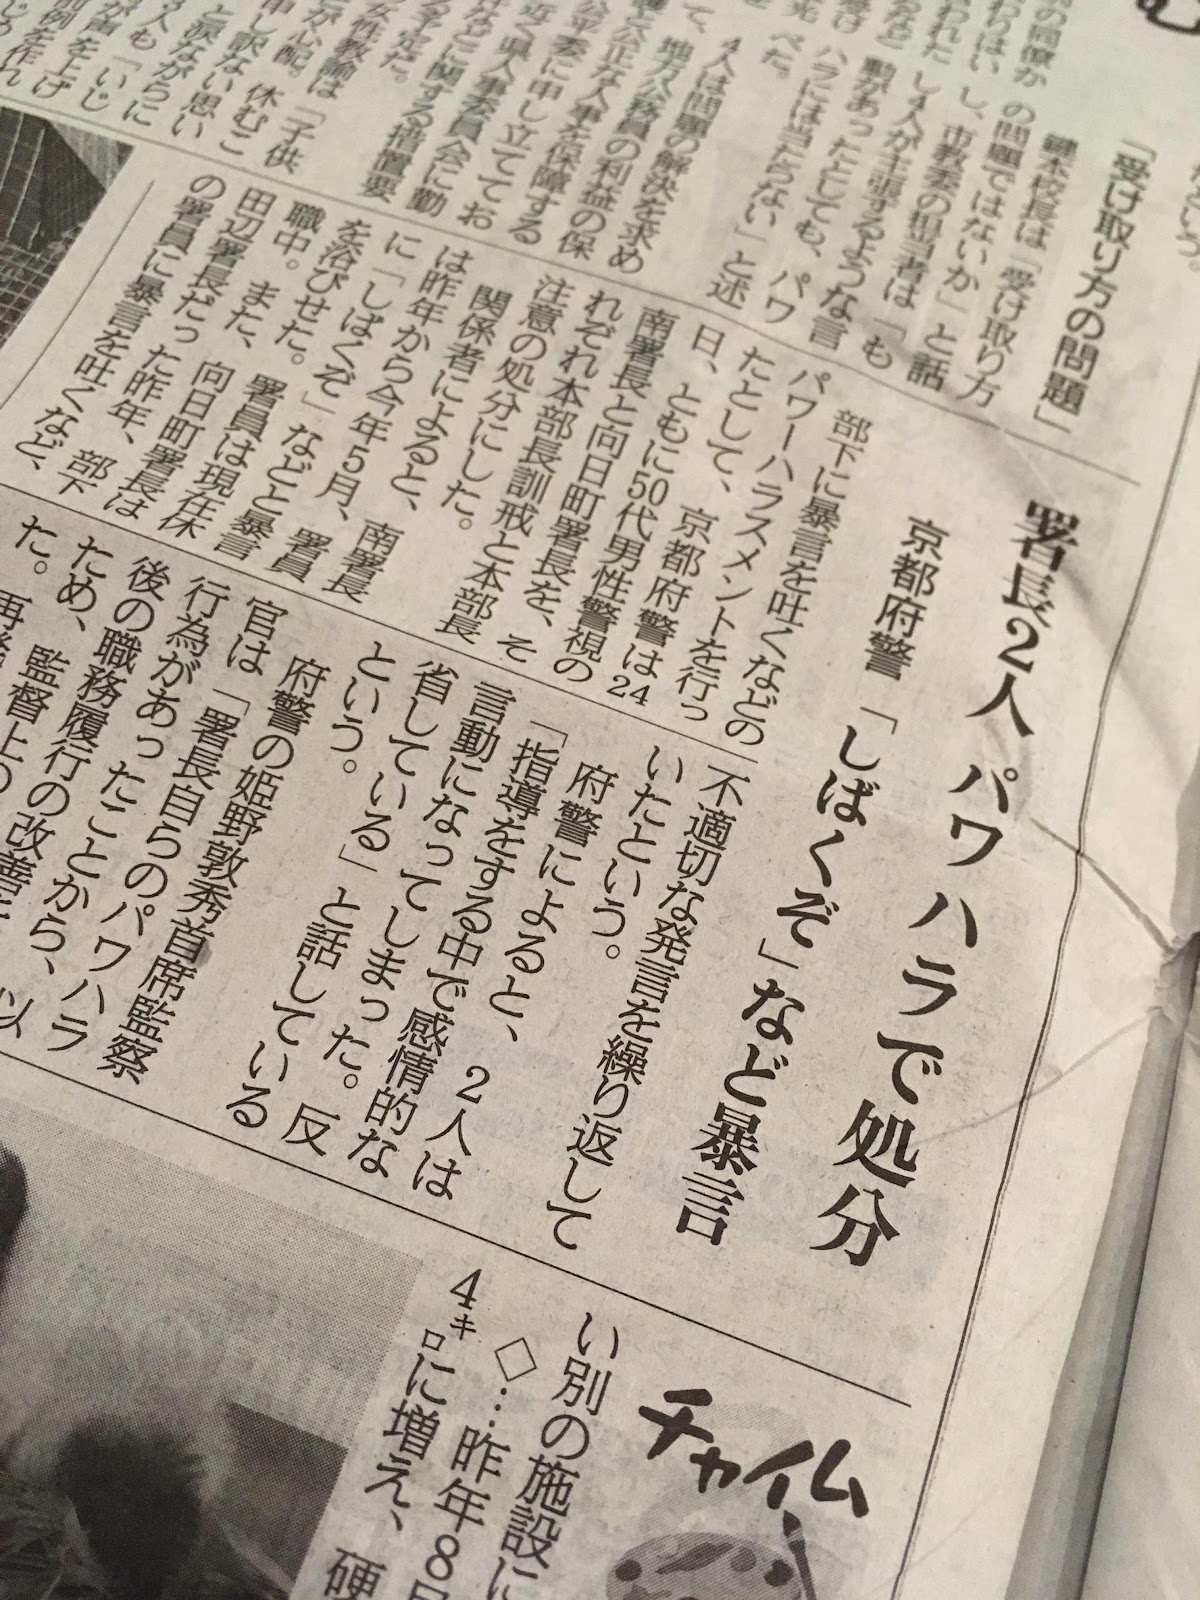 「受け取り方の問題」
鍵本校長は「受け取り方
の問題ではないか」と話
し、市教委の担当者は「も
し4人が主張するような言
動があったとしても、パワ
ハラには当たらない」と述
べた。
4人は問題の解決を求め
て、地方公務員の利益の保
護と公正な人事を保障する
公平委に申し立ててお
近く県人事委員会に勤
などに関する措置要
る予定だ。
女性教諭は「子供
が心配。休むこ
申し訳ない思い
と涙ながらに
人も「いじ
が声を上げ
前例を作れ
署長2人 パワハラで処分
京都府警 「しばくぞ」など暴言
部下に暴言を吐くなどの
パワーハラスメントを行っ
たとして、京都府警は24
日、ともに50代男性警視の
南署長と向日町署長を、そ
れぞれ本部長訓戒と本部長
注意の処分にした。
関係者によると、南署長
は昨年から今年5月、署員
に「しばくぞ」などと暴言
を浴びせた。署員は現在休
職中。また、向日町署長は
田辺署長だった昨年、部下
の署員に暴言を吐くなど、
不適切な発言を繰り返して
いたという。
府警によると、2人は
「指導をする中で感情的な
言動になってしまった。反
省している」と話している
という。
府警の姫野敦秀首席監察
官は「署長自らのパワハラ
行為があったことから、以
後の職務履行の改善
ため、監督上の
た。再発
チャイム
い別の施設に
◇…昨年8月
4㌔に増え、硬